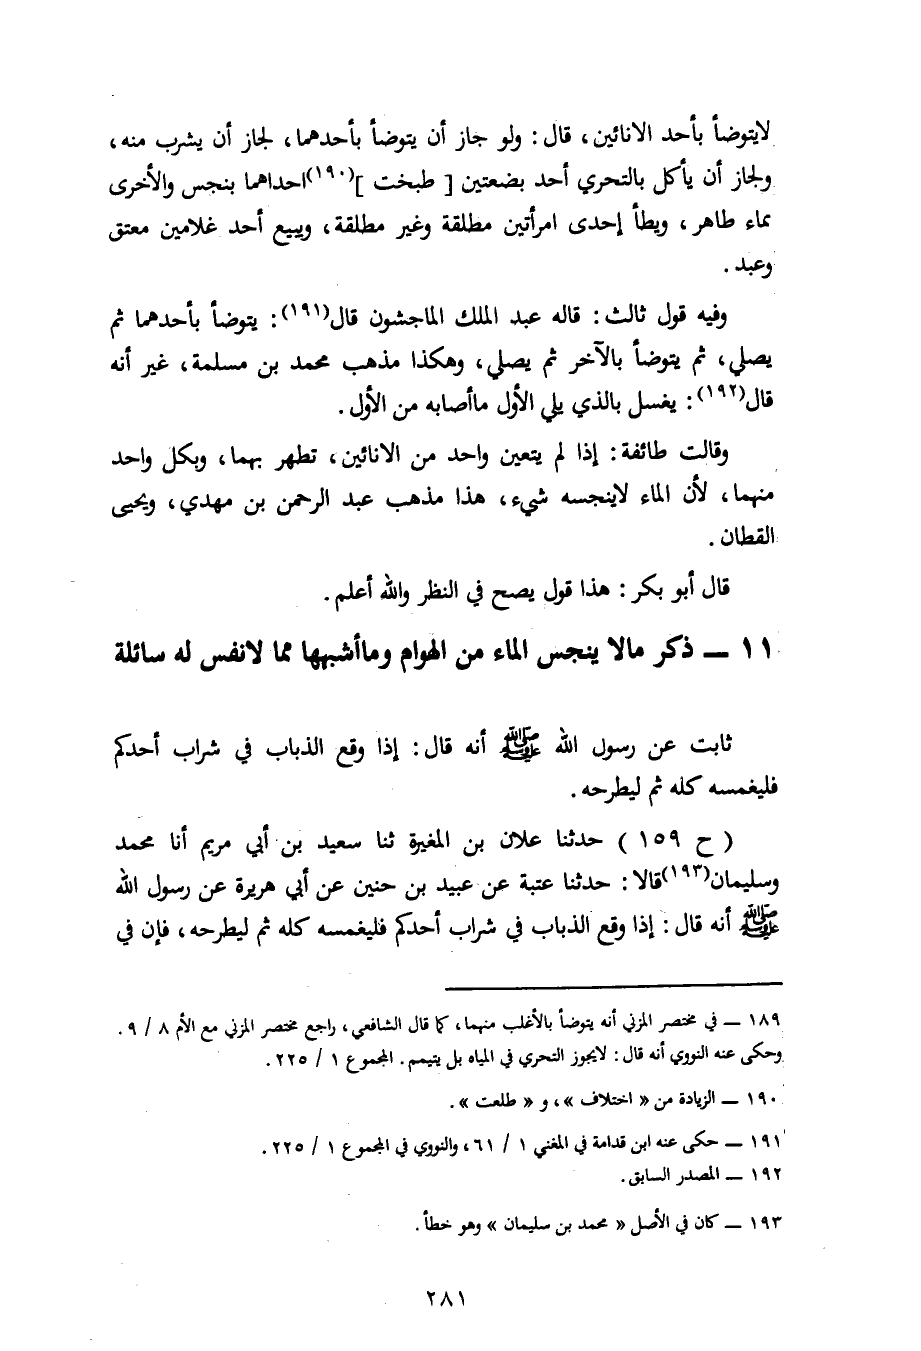 لايتوضأ بأحد الانائين، قال: ولو جاز أن يتوضأ بأحدهما، لجاز أن يشرب منه،
ولجاز أن يأكل بالتحري أحد بضعتين [ طبخت ](١٩٠)احداهما بنجس والأخرى
بماء طاهر، ويطأ إحدى امرأتين مطلقة وغير مطلقة، ويبيع أحد غلامين معتق
وعبد.
وفيه قول ثالث: قاله عبد الملك الماجشون قال(١٩١): يتوضأ بأحدهما ثم
يصلي، ثم يتوضأ بالآخر ثم يصلي، وهكذا مذهب محمد بن مسلمة، غير أنه
قال(١٩٢): يغسل بالذي يلي الأول ماأصابه من الأول.
وقالت طائفة: إذا لم يتعين واحد من الانائين، تطهر بهما، وبكل واحد
منهما، لأن الماء لاينجسه شيء، هذا مذهب عبد الرحمن بن مهدي، ويحيى
القطان.
قال أبو بكر: هذا قول يصح في النظر والله أعلم.
١١ ــ ذكر مالا ينجس الماء من الهوام وماأشبهها مما لانفس له سائلة
ثابت عن رسول الله ﷺ أنه قال: إذا وقع الذباب في شراب أحدكم
فليغمسه كله ثم ليطرحه.
( ح ١٥٩ ) حدثنا علان بن المغيرة ثنا سعيد بن أبي مريم أنا محمد
وسليمان(١٩٣)قالا: حدثنا عتبة عن عبيد بن حنين عن أبي هريرة عن رسول الله
ﷺ أنه قال: إذا وقع الذباب في شراب أحدكم فليغمسه كله ثم ليطرحه، فإن في
١٨٩ ــ في مختصر المزني أنه يتوضأ بالأغلب منهما، كما قال الشافعي، راجع مختصر المزني مع الأم ٨ / ٩.
وحكى عنه النووي أنه قال: لايجوز التحري في المياه بل يتيمم. المجموع ١ / ٢٢٥.
١٩٠ ــ الزيادة من « اختلاف »، و « طلعت ».
١٩١ ــ حكى عنه ابن قدامة في المغني ١ / ٦١، والنووي في المجموع ١ / ٢٢٥.
١٩٢ ــ المصدر السابق.
١٩٣ ــ كان في الأصل « محمد بن سليمان » وهو خطأ.
٢٨١